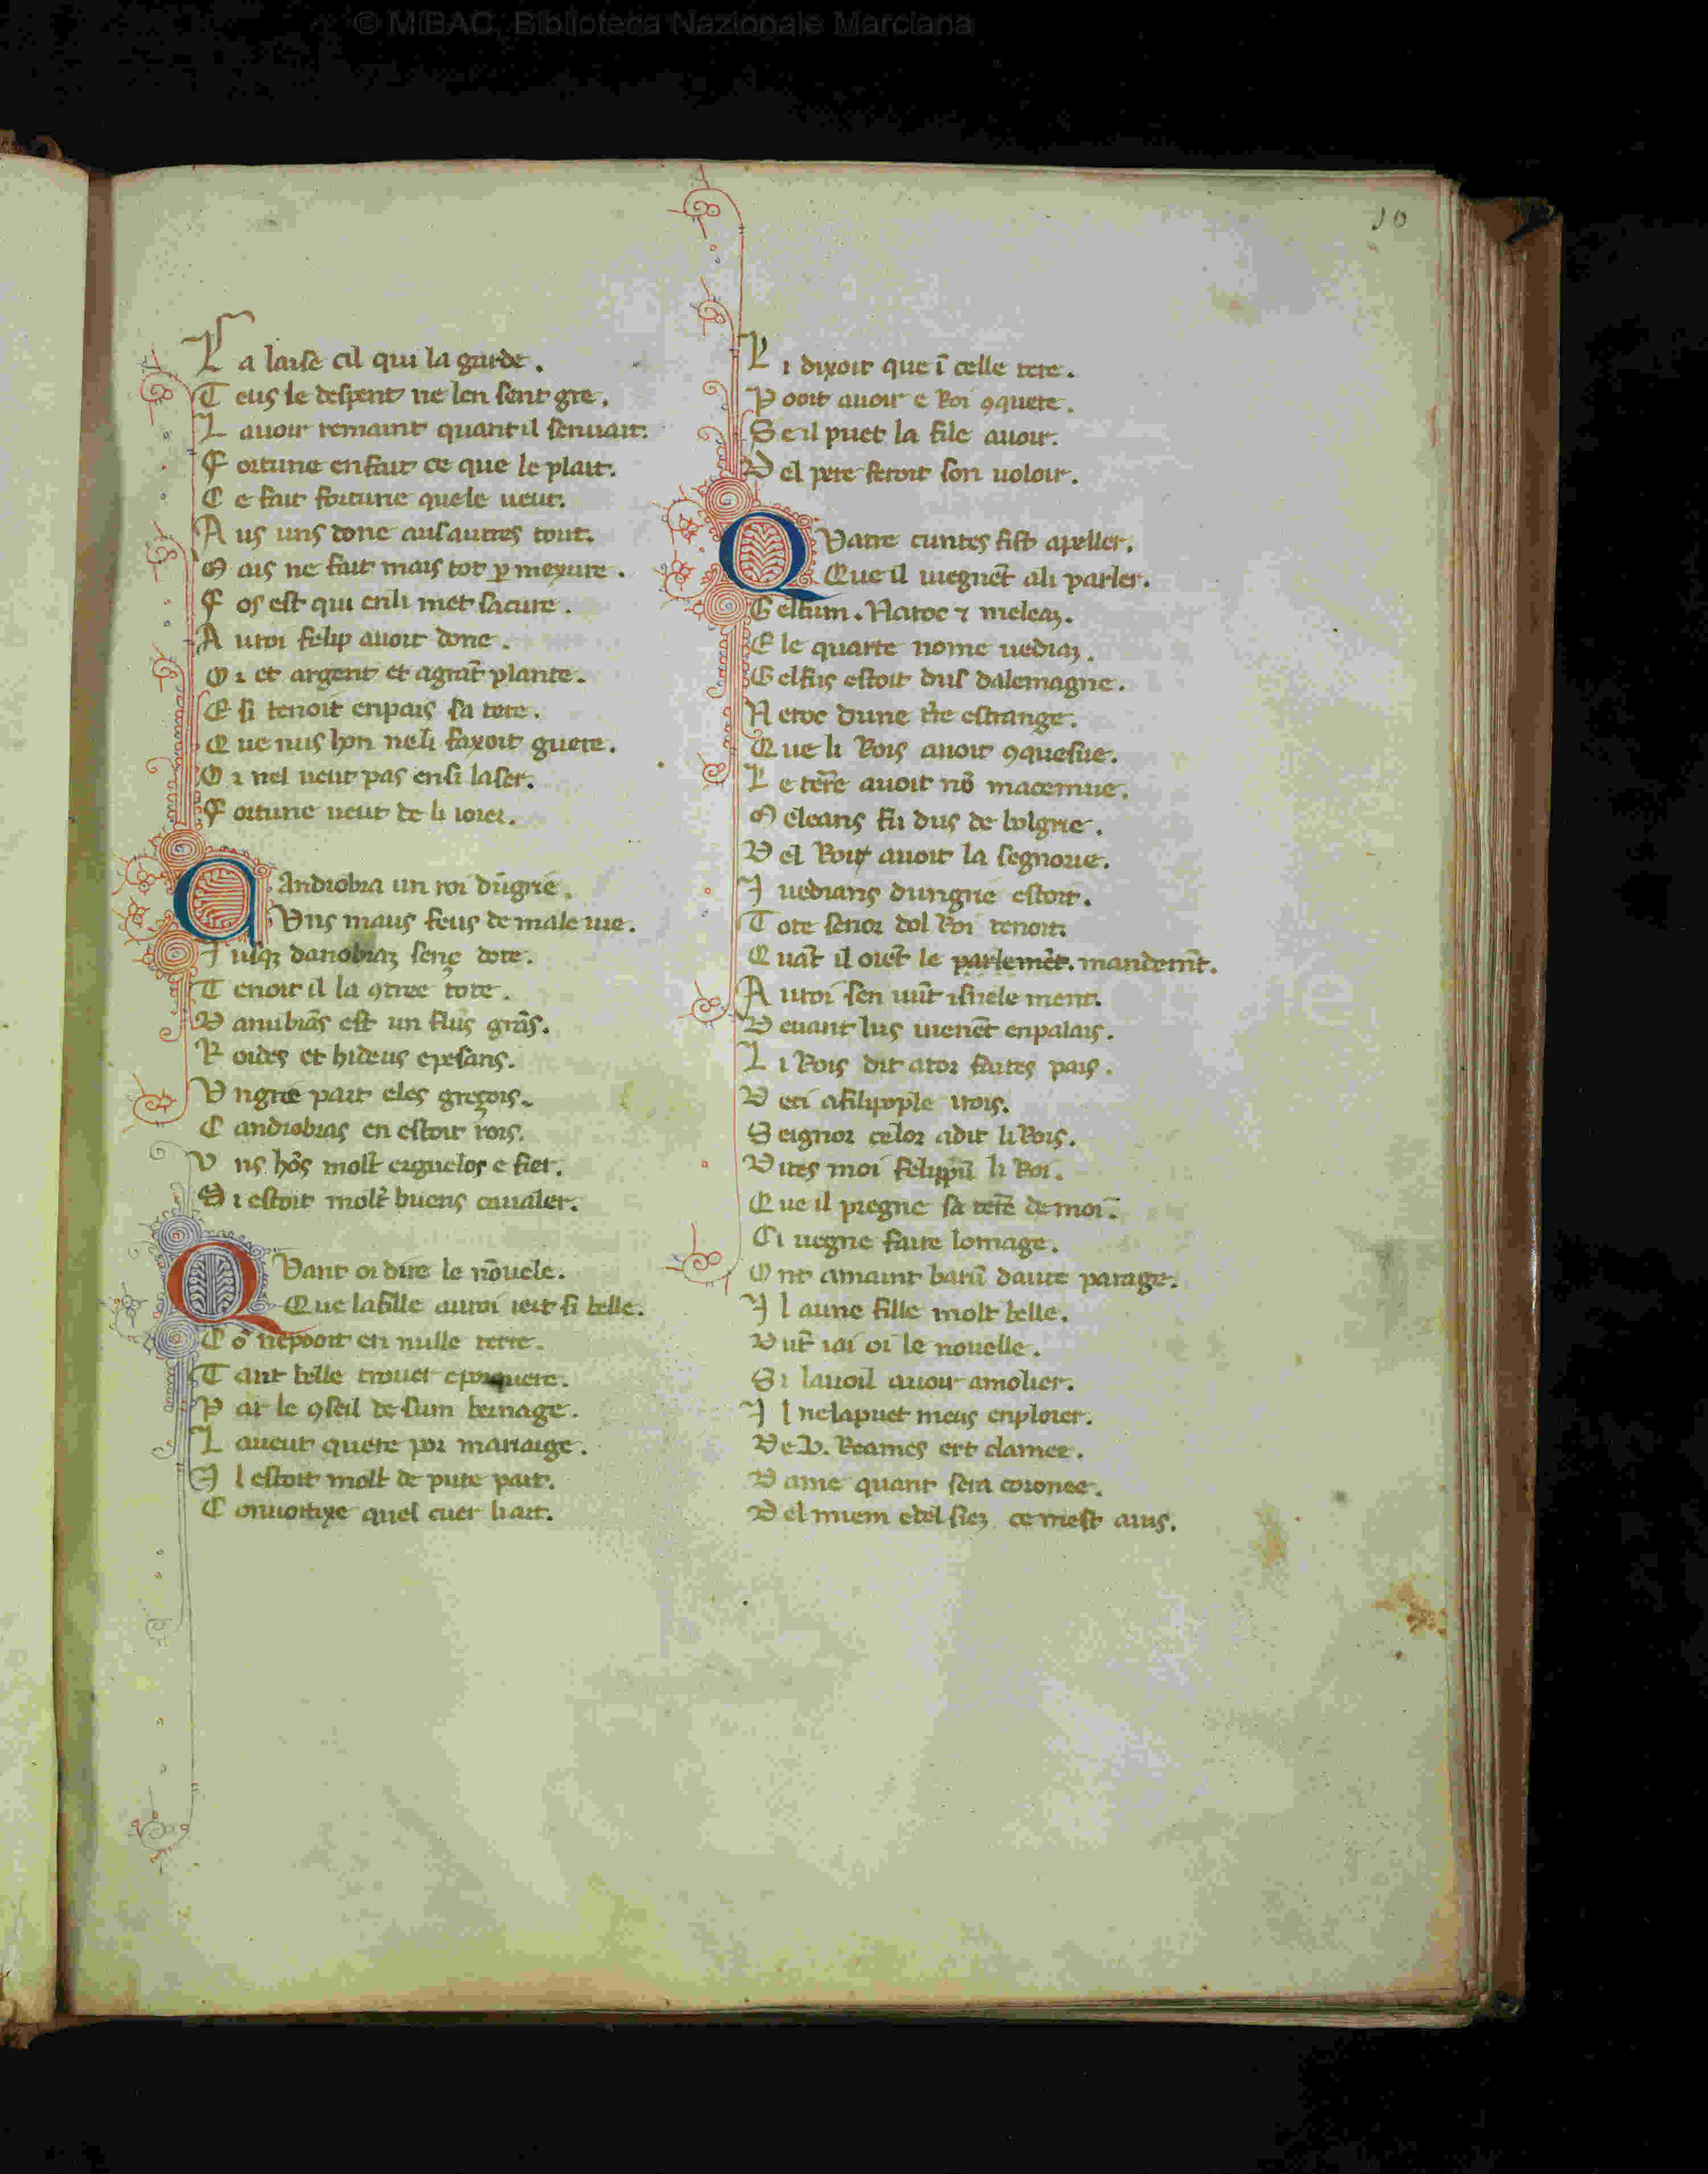 © MiBAC, Biblioteca Nazionale Marciana
10
L a laise cil qui la garde.
T eus le despent ne len sent gre.
L auoir remaint quant il senuait.
F ortune enfait ce que le plait.
C e fait fortune quele ueut.
A us uns done ausautres tout.
M ais ne fait mais tot ꝑ mexure.
F os est qui enli met sacure.
A uroi felip auoit done.
O r et argent et agrãt plante.
E si tenoit enpais sa tere.
Q ue nus hon neli faxoit guere.
O r nel ueut pas ensi laser.
F ortune ueut de li ioier.
Q Andiobra un roi dũgrie.
Vns maus feus de male uie.
J usqꝫ danobiaꝫ senç dote.
T enoit il la ꝯtree tote.
D anubiãs est un fluς grãs.
R oides et hideus epesans.
V ngrie part eles greçois.
C andiobras en estoit rois.
V ns hõs molt erguelos e fier.
S i estoit molt buens caualer.
Q Vant oi dire le nõuele.
Que lafille auroi iert si belle.
C õ nepooit en nulle terre.
T ant belle trouer
P ar le ꝯseil de sum bernage.
L aueut quere por mariaige.
J l estoit molt de pute part.
C onuoitixe quel cuer li art.
L i dixoit que ĩ celle tere.
P ooit auoir e Roi ꝯquere.
S e il puet la file auoir.
D el pere feroit son uoloir.
Q Vatre cuntes fist apeller.
Que il uiegnẽt ali parler.
G elfum. Naroc ⁊ meleaꝫ.
E le quarte nome uediaꝫ.
G elfus estoit dus dalemagne.
N eroc dune tr̃e estrange.
Q ue li Rois auoit ꝯquesue.
L e tere auoit nõ macemue.
M eleans fu dus de bolgrie.
D el Roi auoit la segnorie.
J uedians dungrie estoit.
T ote senor dol Roi tenoit.
Q uãt il oiẽt le parlemẽt. mandemẽt.
A uroi sen uũt isnele ment.
D euant lus uienẽt enpalais.
L i Rois dit ator faites pais.
D eci afilipople irois.
S eignor celor adit li Rois.
D ites moi felippũ li Roi.
Q ue il pregne sa tere de moi.
C i uegne faire lomage.
O nt amaint barũ daute parage.
J l aune fille molt belle.
D unt iai oi le nouelle.
S i lauoil auoir amolier.
J l nelapuet meus enploier.
D e .V. Reames ert clamee.
D ame quant sera coronee.
D el miem edel sieꝫ ce mest auis.